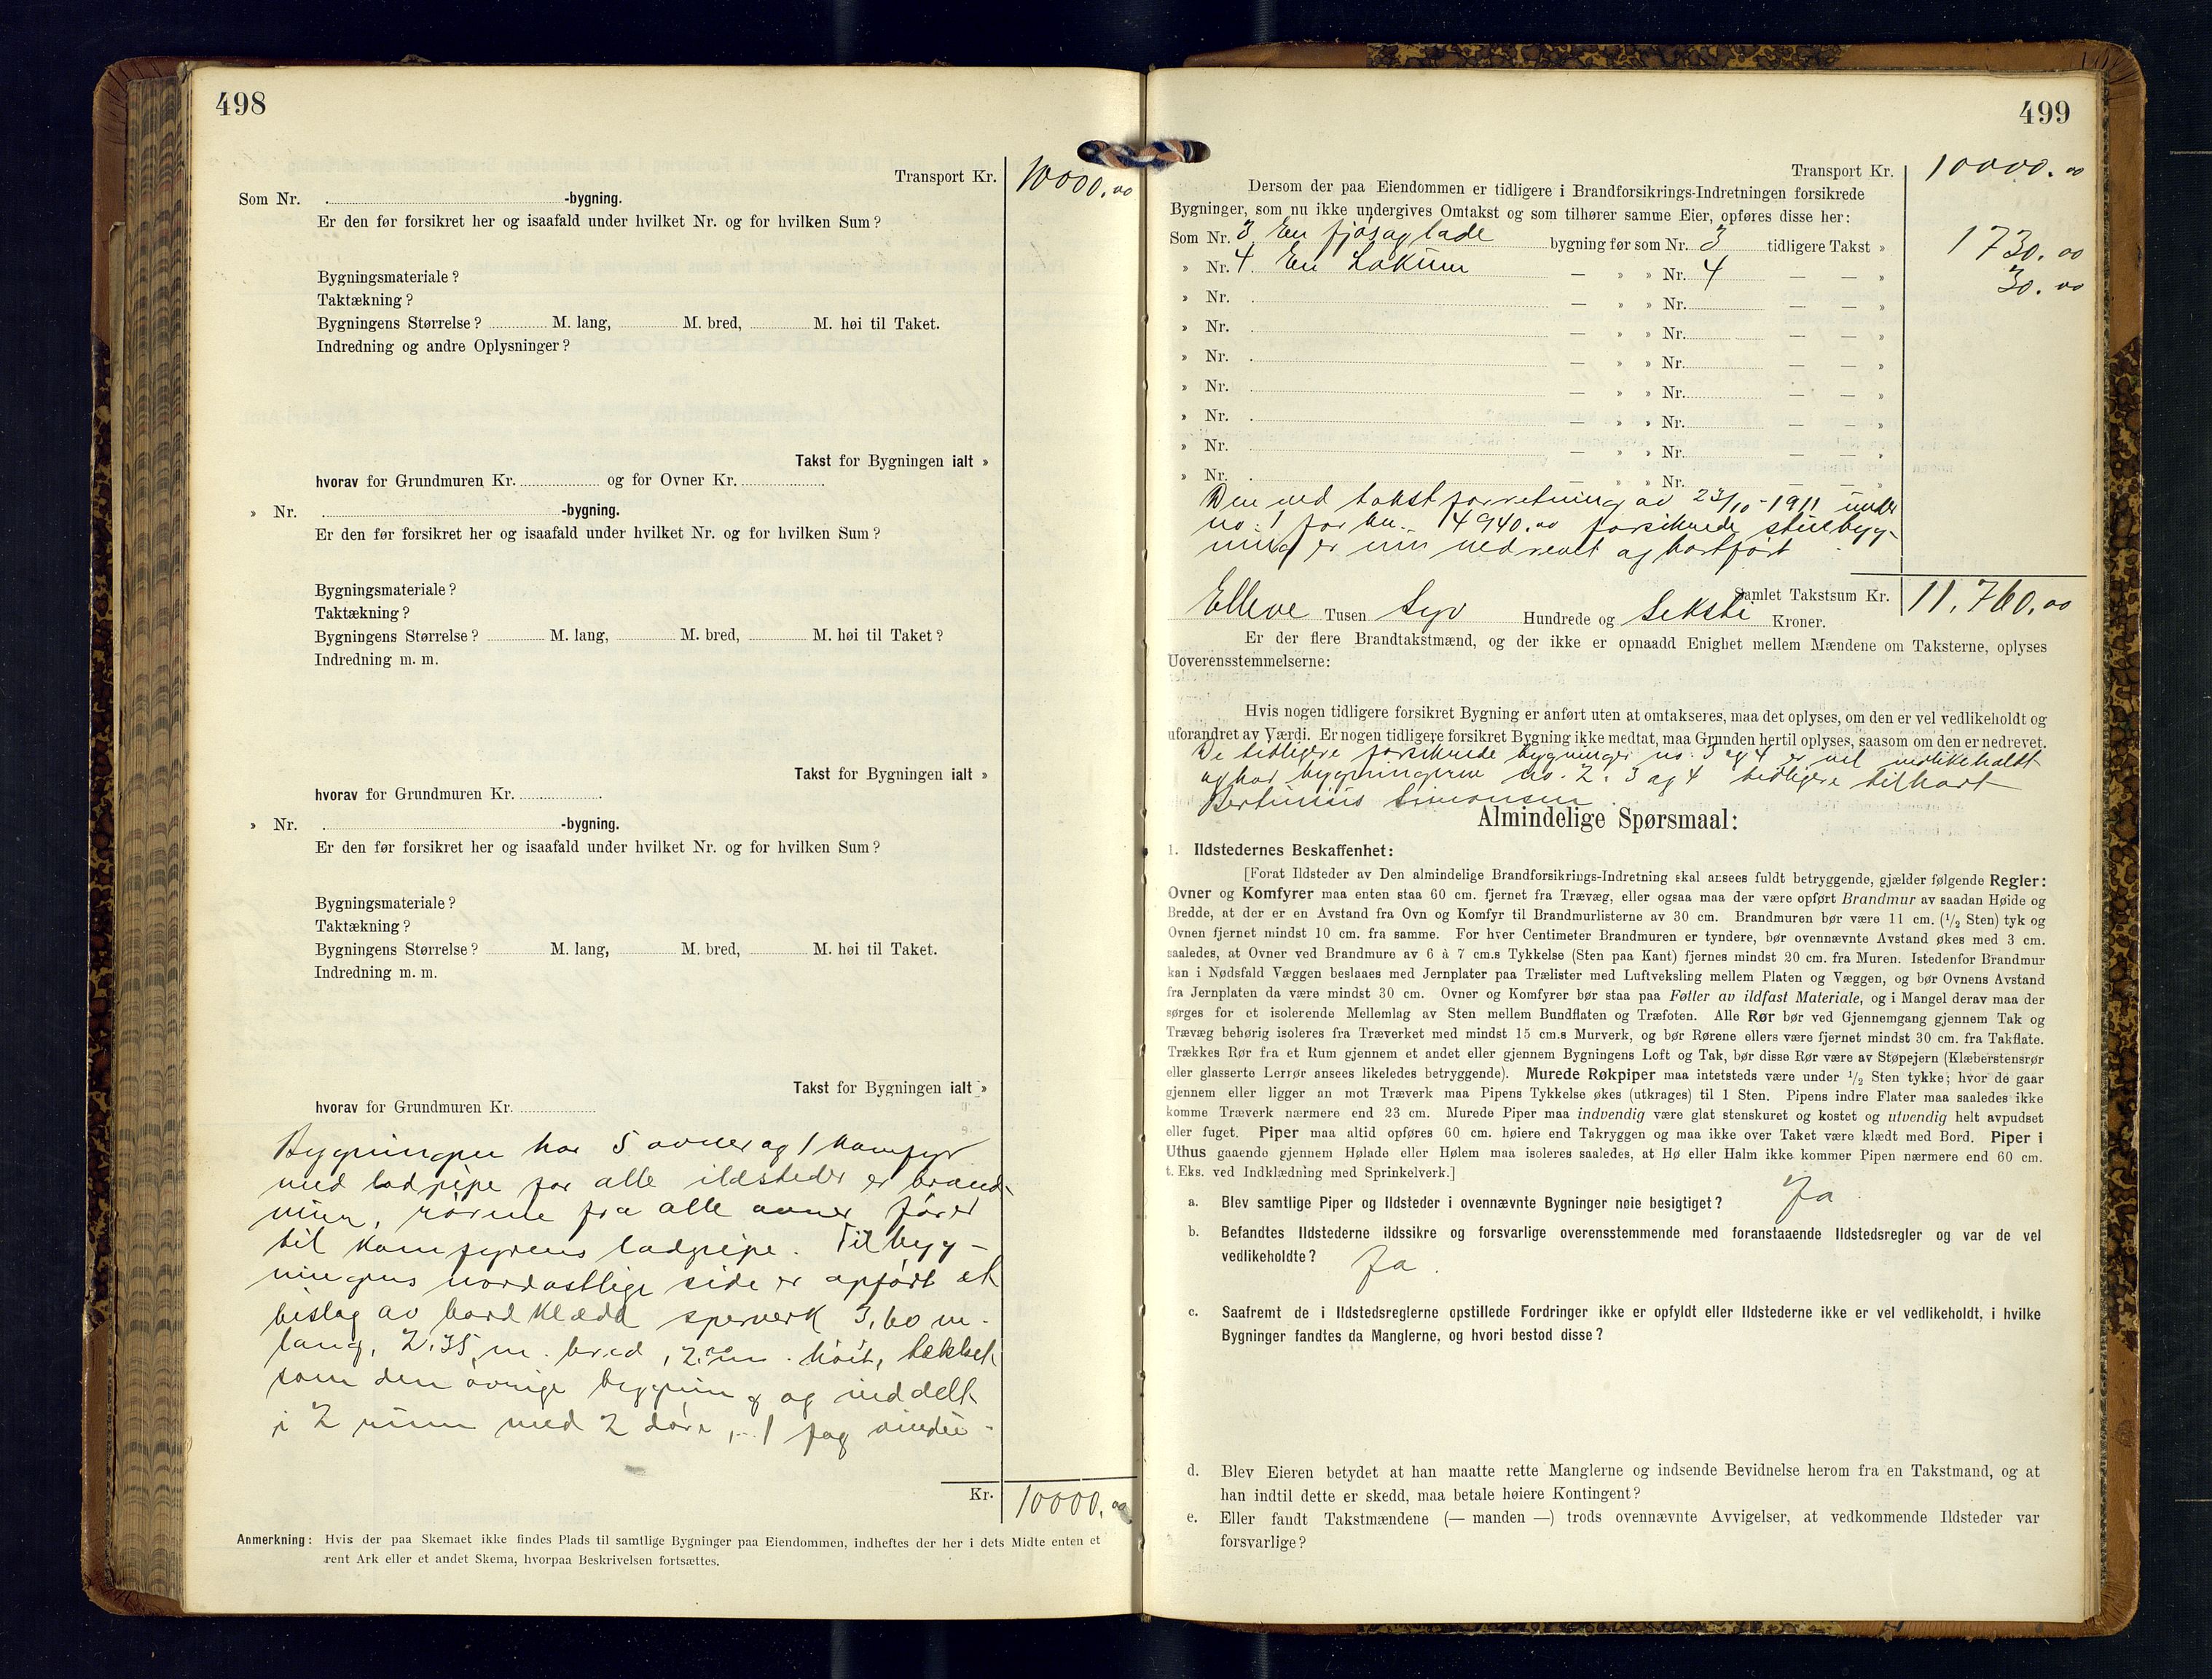 498
Transport Kr. 10000.00
Som Nr. -bygning.
Er den før forsikret her og isaafald under hvilket Nr. og for hvilken Sum?
Bygningsmateriale?
Taktækning?
Bygningens Størrelse? M. lang, M. bred, M. høi til Taket.
Indredning og andre Oplysninger?
Takst for Bygningen ialt »
hvorav for Grundmuren Kr. og for Ovner Kr.
» Nr. -bygning.
Er den før forsikret her og isaafald under hvilket Nr. og for hvilken Sum?
Bygningsmateriale?
Taktækning?
Bygningens Størrelse? M. lang, M. bred, M. høi til Taket?
Indredning m. m.
Takst for Bygningen ialt »
hvorav for Grundmuren Kr.
» Nr. -bygning.
Er den før forsikret her og isaafald under hvilket Nr. og for hvilken Sum?
Bygningsmateriale?
Taktækning?
Bygningens Størrelse? M. lang, M. bred, M. høi til Taket.
Indredning m. m.
Takst for Bygningen ialt »
hvorav for Grundmuren Kr.
Bygningen har 5 ovner og 1 komfyr
med lodpipe for alle ildsteder er brand-
mur, rörene fra alle ovner förer
til komfyrens lodpipe. Til byg-
ningens nordostlige side er opfört et
bislag av bordklædd sperverk 3,60 m.
lang, 2.35 m. bred, 2. m. höit, tækket
som den övrige bygning og inddelt
i 2 rum med 2 döre, 1 fag vindu
Kr. 10000.00
Anmerkning: Hvis der paa Skemaet ikke findes Plads til samtlige Bygninger paa Eiendommen, indheftes der her i dets Midte enten et
rent Ark eller et andet Skema, hvorpaa Beskrivelsen fortsættes.
499
Transport Kr. 10000.00
Dersom der paa Eiendommen er tidligere i Brandforsikrings-Indretningen forsikrede
Bygninger, som nu ikke undergives Omtakst og som tilhører samme Eier, opføres disse her:
Som Nr. 3 En fjösoglade bygning før som Nr. 3 tidligere Takst » 1730.00
» Nr. 4. En Lokum — » » Nr. 4 — — » 30.00
» Nr. — » » Nr. — — »
» Nr. — » » Nr. — — »
» Nr. — » » Nr. — — »
» Nr. — » » Nr. — — »
» Nr. — » » Nr. — — »
» Nr. — » » Nr. — — »
» Nr. — » » Nr. — — »
Den ved takstforretning av 23/10-1911 under
no. 1 for kr. 4940.00 forsikrede stuebyg-
ning er nu nedrevet og bortfört
Samlet Takstsum Kr. 11,760,00
Elleve Tusen Syv Hundrede og Seksti Kroner.
Er der flere Brandtakstmænd, og der ikke er opnaadd Enighet mellem Mændene om Taksterne, oplyses
Uoverensstemmelserne:
Hvis nogen tidligere forsikret Bygning er anført uten at omtakseres, maa det oplyses, om den er vel vedlikeholdt og
uforandret av Værdi. Er nogen tidligere forsikret Bygning ikke medtat, maa Grunden hertil oplyses, saasom om den er nedrevet.
De tidligere forsikrede bygninger no. 3 og 4 er vel vedlikeholdt
og har bygningerne no. 2. 3 og 4 tidligere tilhört
Bertinius Simonsen
Almindelige Spørsmaal:
1. Ildstedernes Beskaffenhet:
[Forat Ildsteder av Den almindelige Brandforsikrings-Indretning skal ansees fuldt betryggende, gjælder følgende Regler:
Ovner og Komfyrer maa enten staa 60 cm. fjernet fra Trævæg, eller ogsaa maa der være opført Brandmur av saadan Høide og
Bredde, at der er en Avstand fra Ovn og Komfyr til Brandmurlisterne av 30 cm. Brandmuren bør være 11 cm. (1/2 Sten) tyk og
Ovnen fjernet mindst 10 cm. fra samme. For hver Centimeter Brandmuren er tyndere, bør ovennævnte Avstand økes med 3 cm.
saaledes, at Ovner ved Brandmure av 6 à 7 cm.s Tykkelse (Sten paa Kant) fjernes mindst 20 cm. fra Muren. Istedenfor Brandmur
kan i Nødsfald Væggen beslaaes med Jernplater paa Trælister med Luftveksling mellem Platen og Væggen, og bør Ovnens Avstand
fra Jernplaten da være mindst 30 cm. Ovner og Komfyrer bør staa paa Føtter av ildfast Materiale, og i Mangel derav maa der
sørges for et isolerende Mellemlag av Sten mellem Bundflaten og Træfoten. Alle Rør bør ved Gjennemgang gjennem Tak og
Trævæg behørig isoleres fra Træverket med mindst 15 cm.s Murverk, og bør Rørene ellers være fjernet mindst 30 cm. fra Takflate.
Trækkes Rør fra et Rum gjennem et andet eller gjennem Bygningens Loft og Tak, bør disse Rør være av Støpejern (Klæberstensrør
eller glasserte Lerrør ansees likeledes betryggende). Murede Røkpiper maa intetsteds være under 1/2 Sten tykke; hvor de gaar
gjennem eller ligger an mot Træverk maa Pipens Tykkelse økes (utkrages) til 1 Sten. Pipens indre Flater maa saaledes ikke
komme Træverk nærmere end 23 cm. Murede Piper maa indvendig være glat stenskuret og kostet og utvendig helt avpudset
eller fuget. Piper maa altid opføres 60 cm. høiere end Takryggen og maa ikke over Taket være klædt med Bord. Piper i
Uthus gaaende gjennem Hølade eller Hølem maa isoleres saaledes, at Hø eller Halm ikke kommer Pipen nærmere end 60 cm.
t. Eks. ved Indklædning med Sprinkelverk.]
a. Blev samtlige Piper og Ildsteder i ovennævnte Bygninger nøie besigtiget? Ja
b. Befandtes Ildstederne ildssikre og forsvarlige overensstemmende med foranstaaende Ildstedsregler og var de vel
vedlikeholdte? Ja.
c. Saafremt de i Ildstedsreglerne opstillede Fordringer ikke er opfyldt eller Ildstederne ikke er vel vedlikeholdt, i hvilke
Bygninger fandtes da Manglerne, og hvori bestod disse?
d. Blev Eieren betydet at han maatte rette Manglerne og indsende Bevidnelse herom fra en Takstmand, og at
han indtil dette er skedd, maa betale høiere Kontingent?
e. Eller fandt Takstmændene (— manden —) trods ovennævnte Avvigelser, at vedkommende Ildsteder var
forsvarlige?